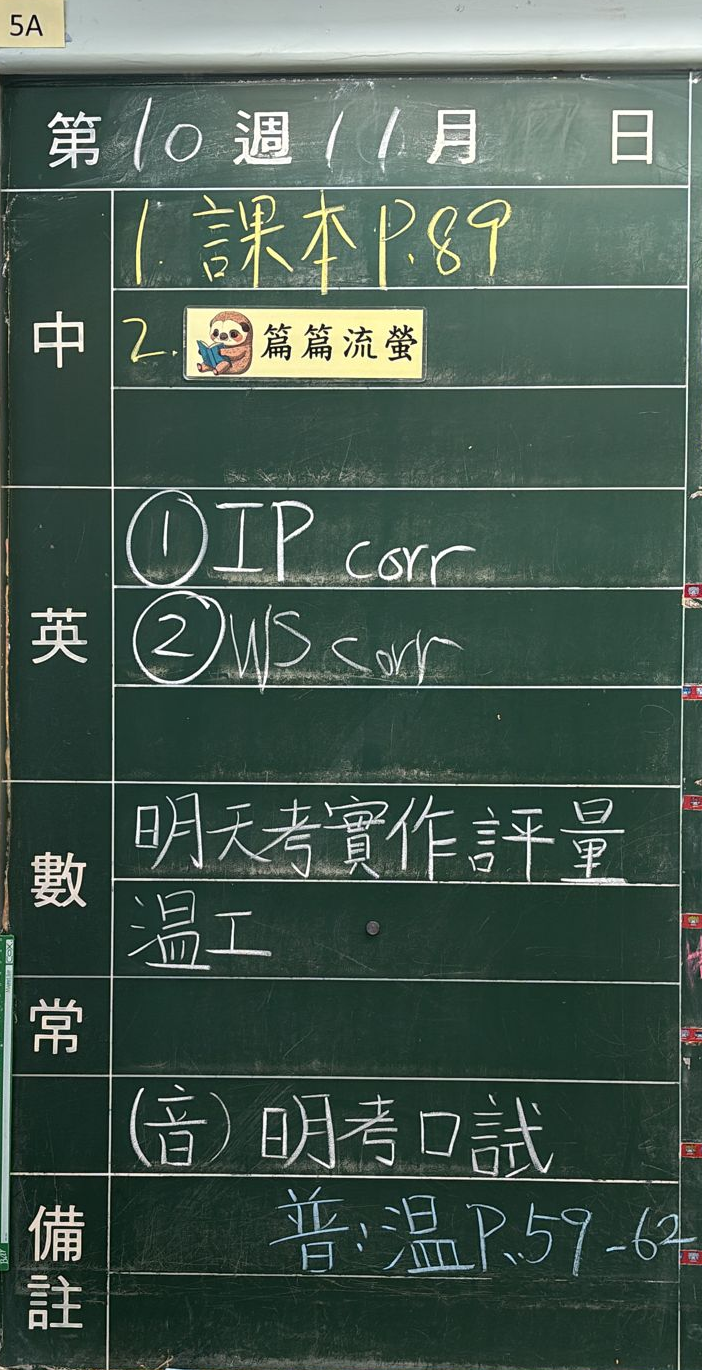 5A
第10週11月 日
中
1. 課本P.89
2. 篇篇流螢
英
①IP corr
②WS corr
數
明天考實作評量
溫工
常
(音)明考口試
備註
普:溫P.59-62